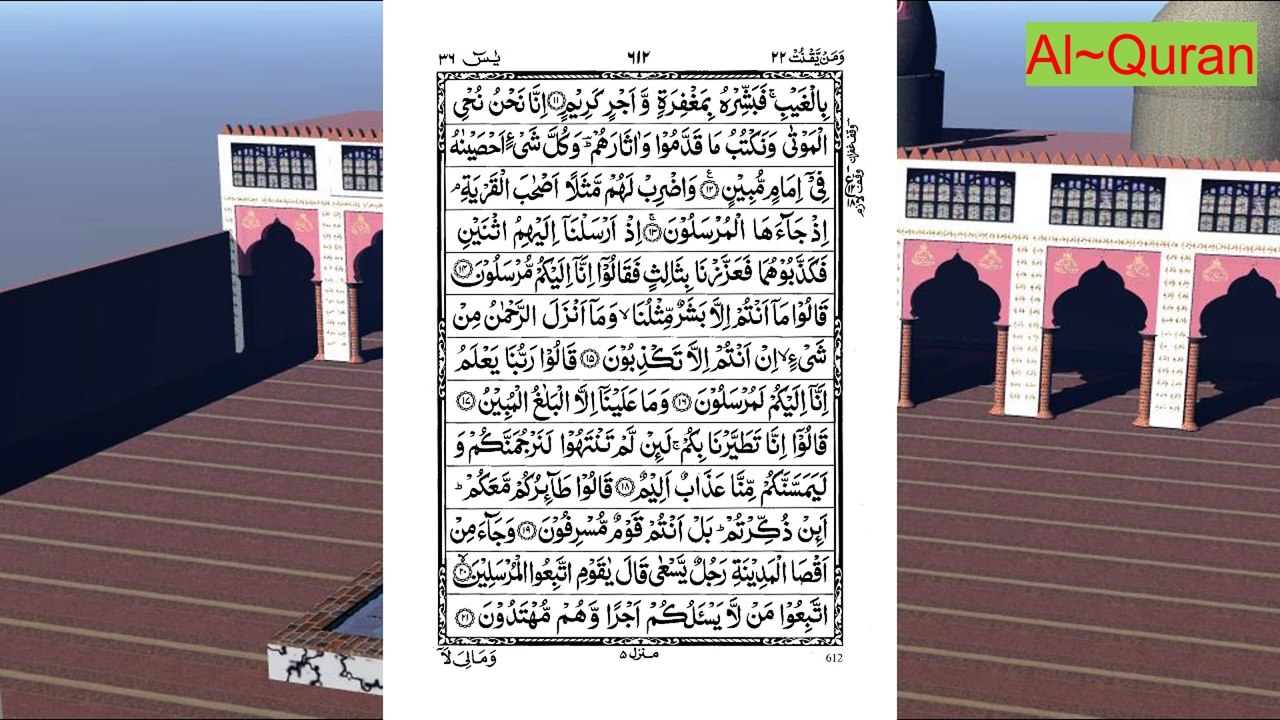 Al~Quran
وَمَنْ يَّقْنُتْ ٢٢
٦١٢
يٰسٓ ٣٦
بِالْغَيْبِ ۚ فَبَشِّرْهُ بِمَغْفِرَةٍ وَّ اَجْرٍ كَرِيْمٍ ﴿١١﴾ اِنَّا نَحْنُ نُحْیِ
الْمَوْتٰى وَنَكْتُبُ مَا قَدَّمُوْا وَاٰثَارَهُمْ ؕ وَكُلَّ شَیْءٍ اَحْصَيْنٰهُ
فِیْۤ اِمَامٍ مُّبِيْنٍ ﴿١٢﴾ وَاضْرِبْ لَهُمْ مَّثَلًا اَصْحٰبَ الْقَرْيَةِ ۘ
اِذْ جَآءَهَا الْمُرْسَلُوْنَ ﴿١٣﴾ اِذْ اَرْسَلْنَاۤ اِلَيْهِمُ اثْنَيْنِ
فَكَذَّبُوْهُمَا فَعَزَّزْنَا بِثَالِثٍ فَقَالُوْۤا اِنَّاۤ اِلَيْكُمْ مُّرْسَلُوْنَ ﴿١٤﴾
قَالُوْا مَاۤ اَنْتُمْ اِلَّا بَشَرٌ مِّثْلُنَا ۙ وَمَاۤ اَنْزَلَ الرَّحْمٰنُ مِنْ
شَیْءٍ ۙ اِنْ اَنْتُمْ اِلَّا تَكْذِبُوْنَ ﴿١٥﴾ قَالُوْا رَبُّنَا يَعْلَمُ
اِنَّاۤ اِلَيْكُمْ لَمُرْسَلُوْنَ ﴿١٦﴾ وَمَا عَلَيْنَاۤ اِلَّا الْبَلٰغُ الْمُبِيْنُ ﴿١٧﴾
قَالُوْۤا اِنَّا تَطَيَّرْنَا بِكُمْ ۚ لَئِنْ لَّمْ تَنْتَهُوْا لَنَرْجُمَنَّكُمْ وَ
لَيَمَسَّنَّكُمْ مِّنَّا عَذَابٌ اَلِيْمٌ ﴿١٨﴾ قَالُوْا طَآئِرُكُمْ مَّعَكُمْ ؕ
اَئِنْ ذُكِّرْتُمْ ؕ بَلْ اَنْتُمْ قَوْمٌ مُّسْرِفُوْنَ ﴿١٩﴾ وَجَآءَ مِنْ
اَقْصَا الْمَدِيْنَةِ رَجُلٌ يَّسْعٰى قَالَ يٰقَوْمِ اتَّبِعُوا الْمُرْسَلِيْنَ ﴿٢٠﴾
اتَّبِعُوْا مَنْ لَّا يَسْـَٔلُكُمْ اَجْرًا وَّهُمْ مُّهْتَدُوْنَ ﴿٢١﴾
وقف غفران
وقف لازم
612
منزل ٥
وَمَالِیَ لَاۤ